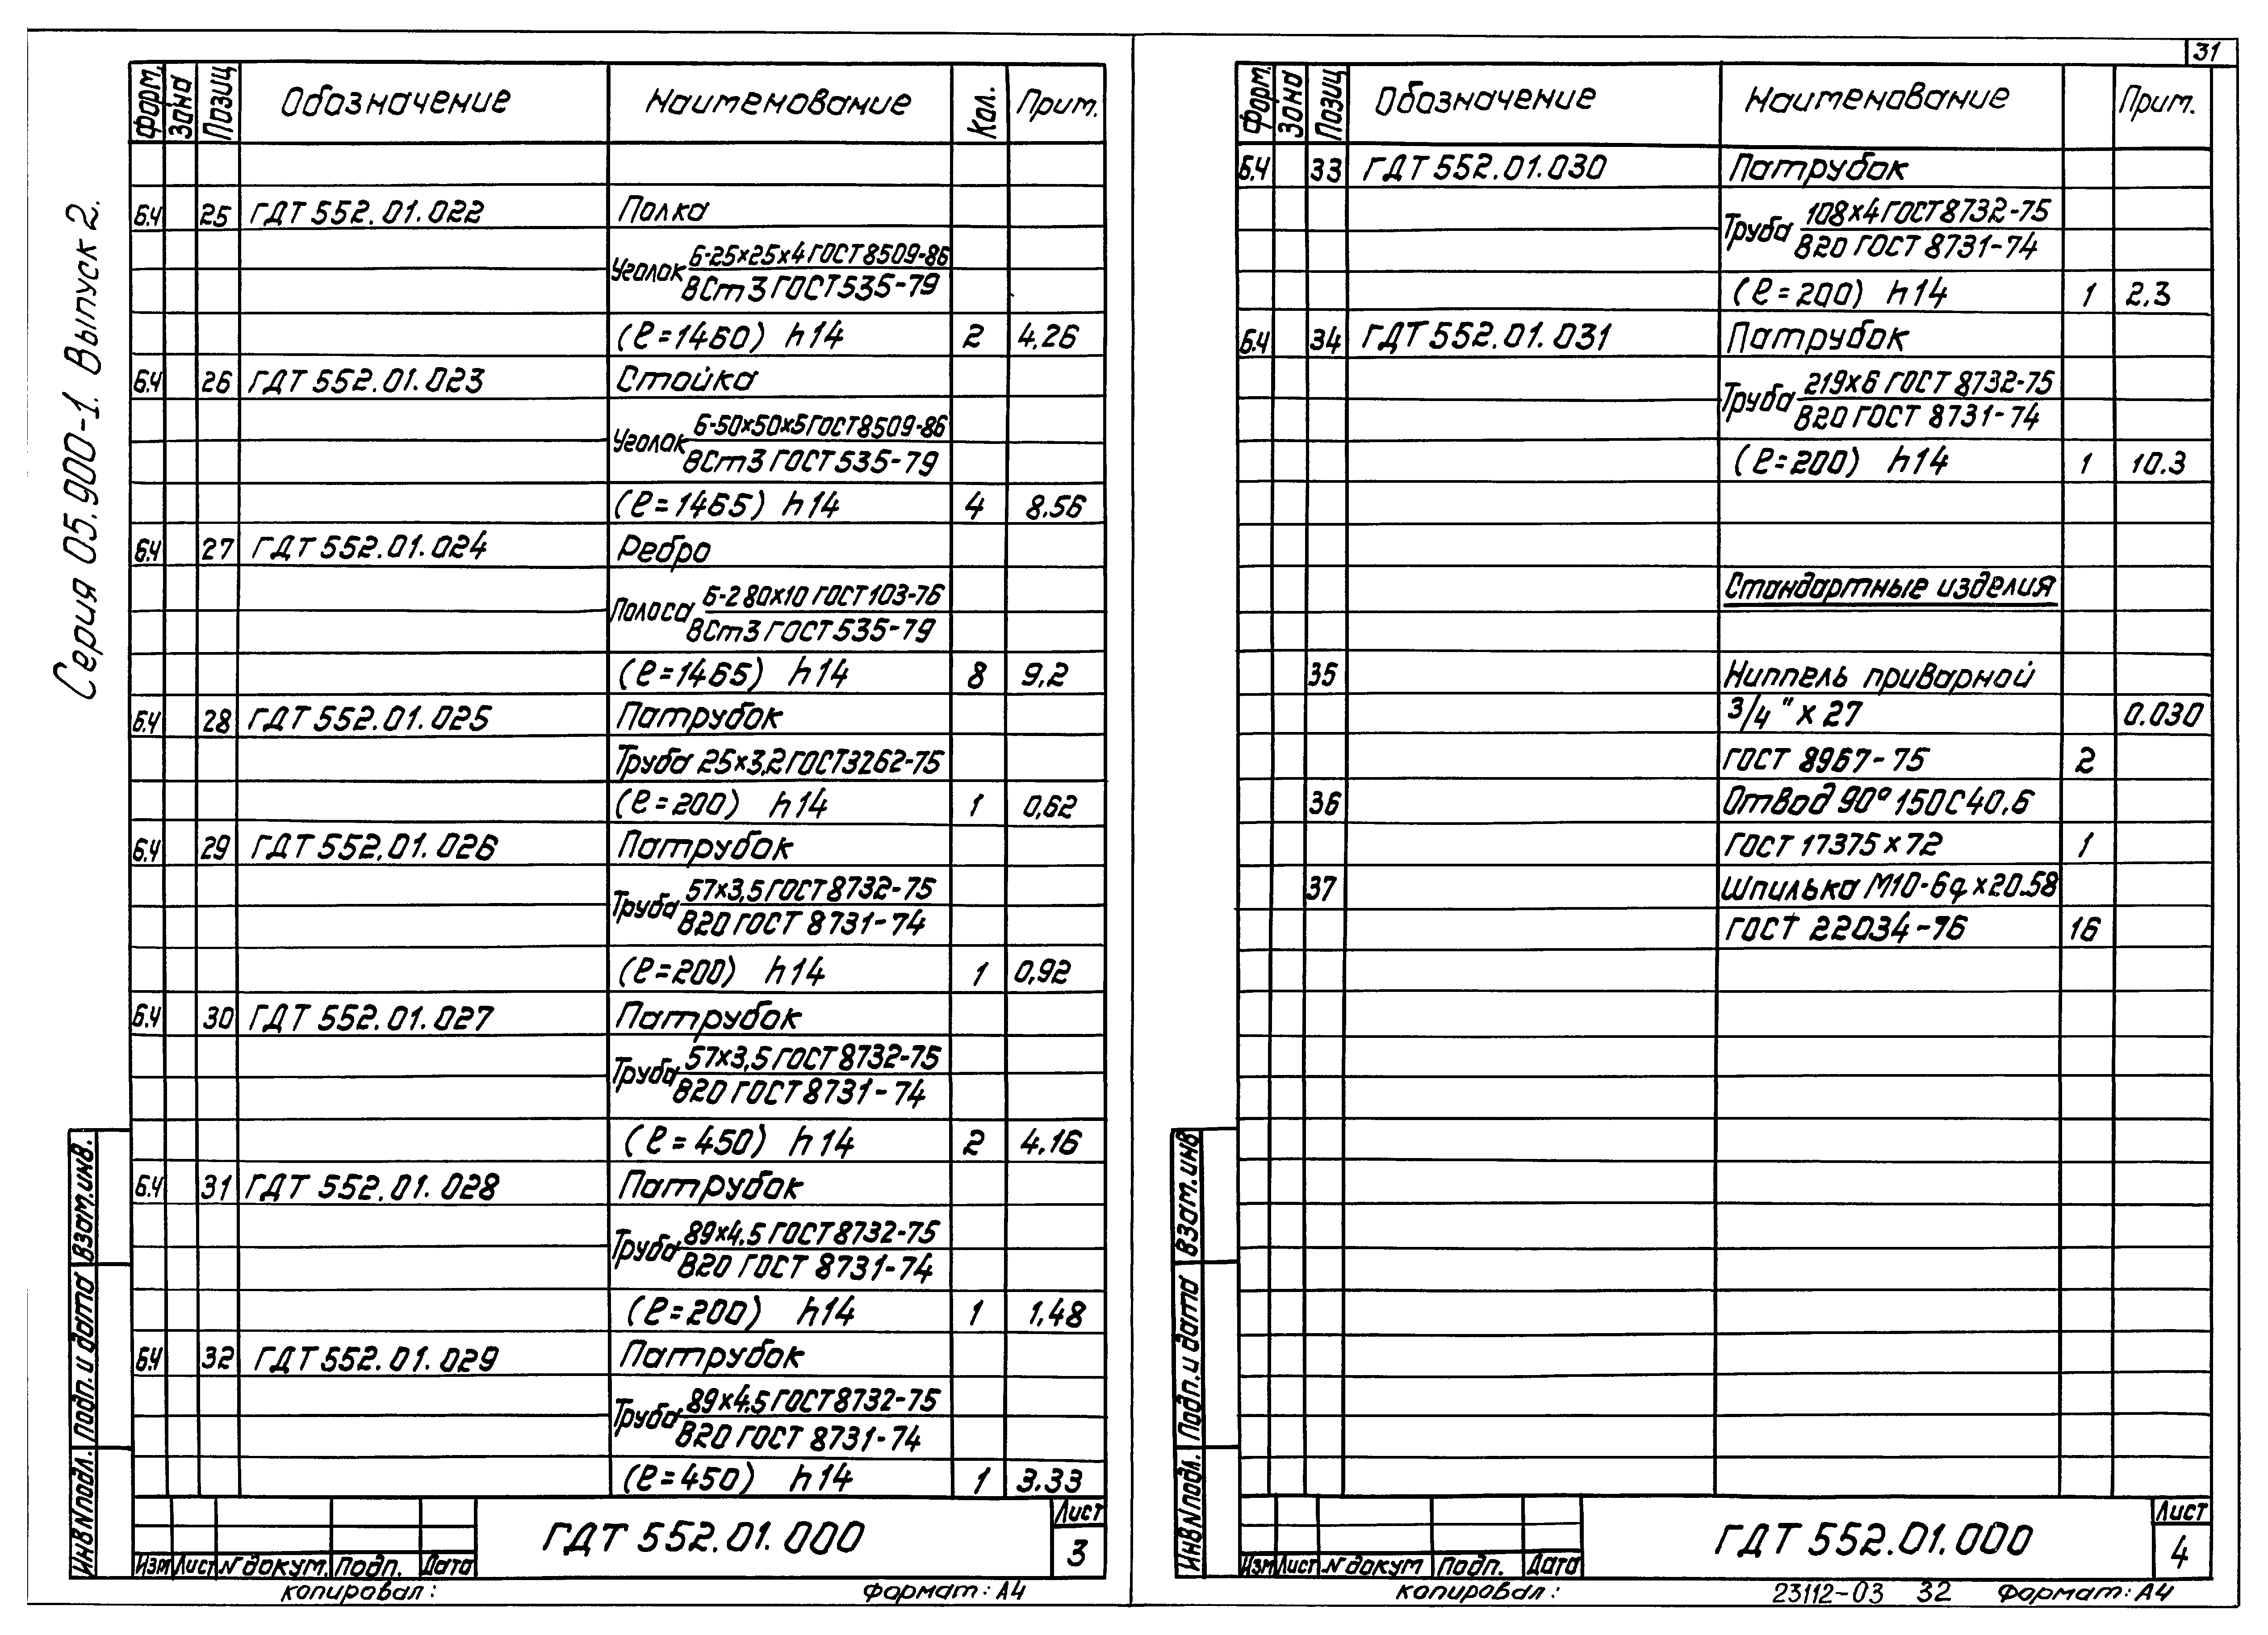 Серия 05.900-1. Выпуск 2.
Форм. Зона Позиц Обозначение Наименование Кол. Прим.
б.ч 25 ГДТ 552.01.022 Полка
Уголок Б-25х25х4 ГОСТ 8509-86
ВСт3 ГОСТ 535-79
(ℓ=1460) h14 2 4.26
б.ч 26 ГДТ 552.01.023 Стойка
Уголок Б-50х50х5 ГОСТ 8509-86
ВСт3 ГОСТ 535-79
(ℓ=1465) h14 4 8.56
б.ч 27 ГДТ 552.01.024 Ребро
Полоса Б-2 80х10 ГОСТ 103-76
ВСт3 ГОСТ 535-79
(ℓ=1465) h14 8 9,2
б.ч 28 ГДТ 552.01.025 Патрубок
Труба 25х3,2 ГОСТ 3262-75
(ℓ=200) h14 1 0,62
б.ч 29 ГДТ 552.01.026 Патрубок
Труба 57х3,5 ГОСТ 8732-75
В20 ГОСТ 8731-74
(ℓ=200) h14 1 0,92
б.ч 30 ГДТ 552.01.027 Патрубок
Труба 57х3,5 ГОСТ 8732-75
В20 ГОСТ 8731-74
(ℓ=450) h14 2 4,16
б.ч 31 ГДТ 552.01.028 Патрубок
Труба 89х4,5 ГОСТ 8732-75
В20 ГОСТ 8731-74
(ℓ=200) h14 1 1,48
б.ч 32 ГДТ 552.01.029 Патрубок
Труба 89х4,5 ГОСТ 8732-75
В20 ГОСТ 8731-74
(ℓ=450) h14 1 3.33
Взам.инв.
Подп. и дата
Инв N подл.
Изм Лист N докум. Подп. Дата
ГДТ 552.01.000
Лист
3
копировал:
формат: А4
31
Форм. Зона Позиц Обозначение Наименование Прим.
б.ч 33 ГДТ 552.01.030 Патрубок
Труба 108х4 ГОСТ 8732-75
В20 ГОСТ 8731-74
(ℓ=200) h14 1 2,3
б.ч 34 ГДТ 552.01.031 Патрубок
Труба 219х6 ГОСТ 8732-75
В20 ГОСТ 8731-74
(ℓ=200) h14 1 10.3
Стандартные изделия
35 Ниппель приварной
3/4" х 27 0.030
ГОСТ 8967-75 2
36 Отвод 90° 150С40,6
ГОСТ 17375х72 1
37 Шпилька М10-6gх20.58
ГОСТ 22034-76 16
Взам.инв
Подп. и дата
Инв N подл.
Изм Лист N докум Подп. Дата
ГДТ 552.01.000
Лист
4
копировал:
23112-03 32
Формат: А4